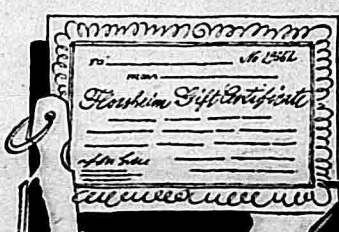 TO No
FROM
Florsheim Gift Certificate